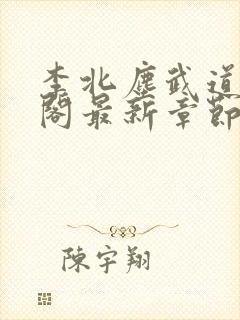 李北塵武道
閣最新章節
陳宇翔